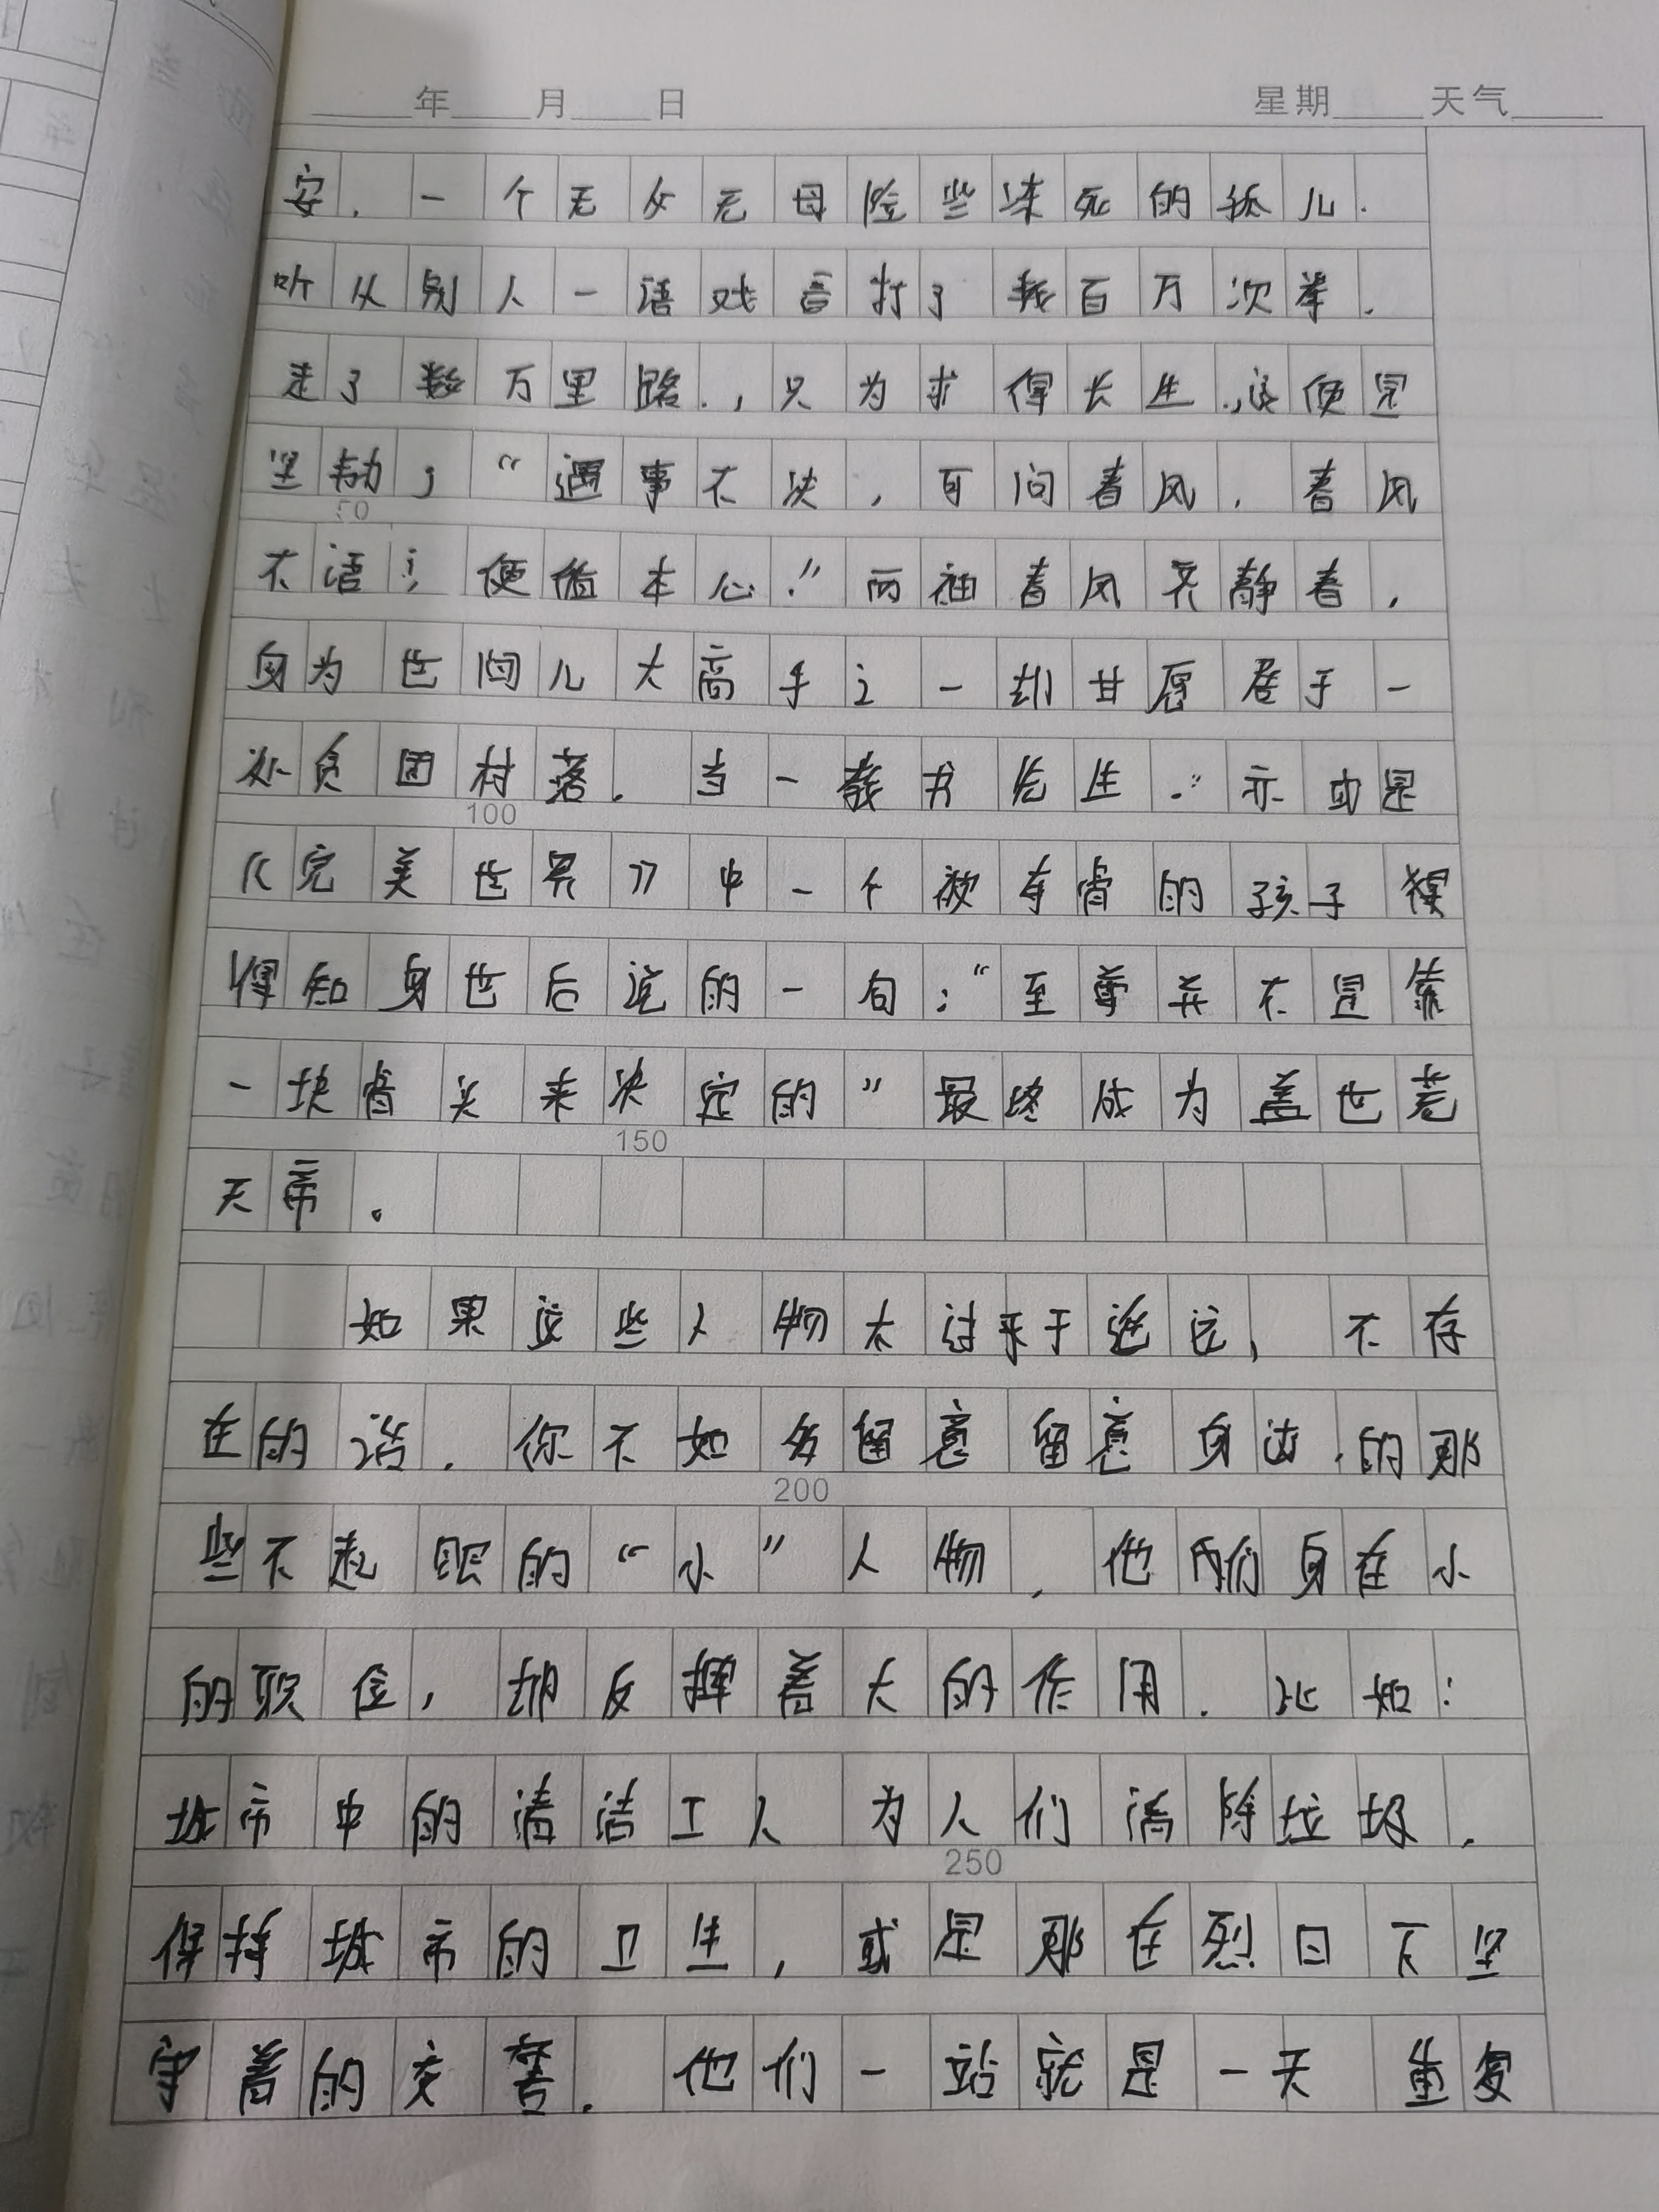 年 月 日 星期 天气
安,一个无父无母险些冻死的孤儿.
听从别人一语戏言打了数百万次拳.
走了数万里路.,只为求得长生.,这便是
坚韧;“遇事不决,可问春风,春风
50
不语,便循本心.”两袖春风齐静春,
身为世间几大高手之一却甘愿居于一
处贫困村落.当一教书先生.”亦或是
100
《完美世界》中一个被夺骨的孩子
得知身世后说的一句:“至尊并不是靠
一块骨头来决定的”最终成为盖世荒
150
天帝。
如果这些人物太过乎于遥远,不存
在的话.你不如多留意留意身边的那
200
些不起眼的“小”人物,他们身在小
的职位,却反挥着大的作用.比如:
城市中的清洁工人为人们清除垃圾.
250
保持城市的卫生,或是那在烈日下坚
守着的交警.他们一站就是一天重复